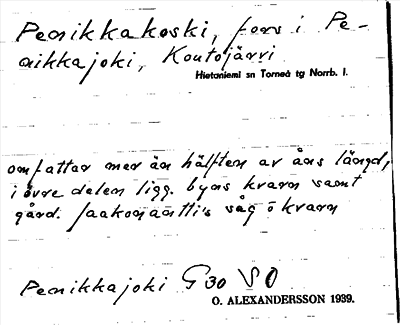 Penikkakoski, fors i Pe-
nikkajoki, Koutojärvi
Hietaniemi sn Torneå tg Norrb. l.
omfattar mer än hälften av åns längd,
i övre delen ligg. byns kvarn samt
gård. Jaakonantti's såg o kvarn
Penikkajoki G 30 V O
O. ALEXANDERSSON 1939.